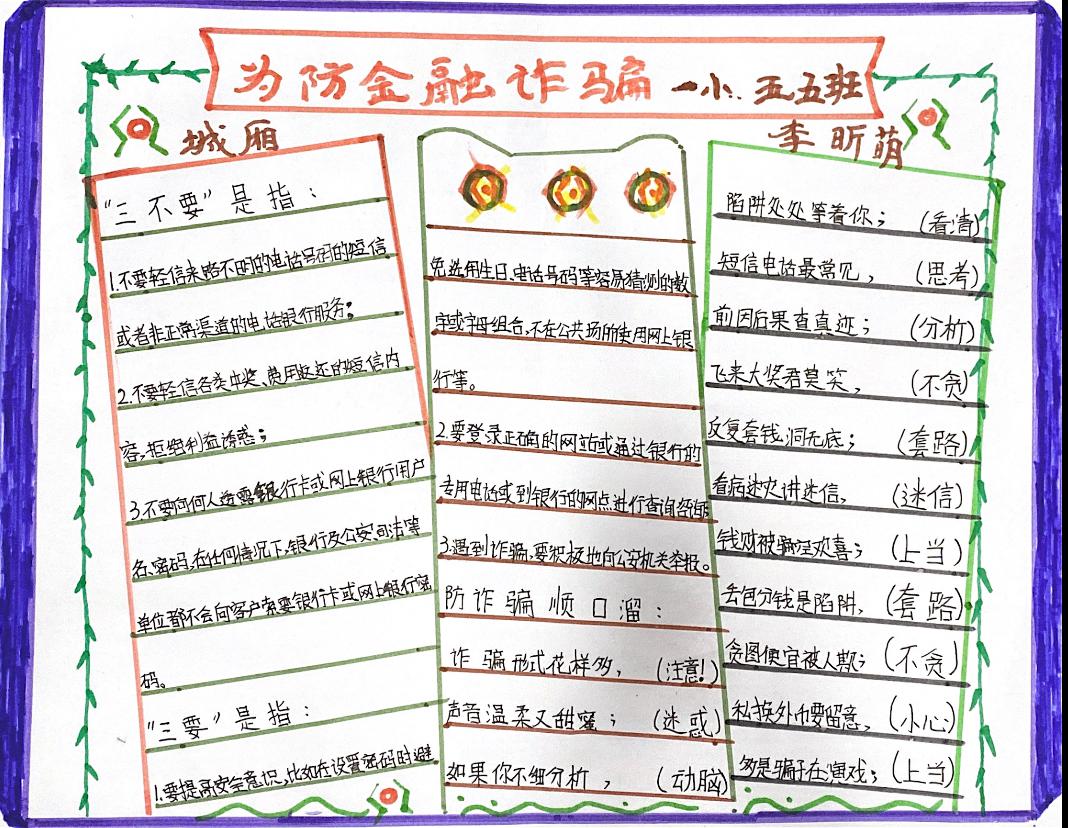 为防金融诈骗 一小.五五班
城厢
李昕萌
“三不要”是指：
1.不要轻信来路不明的电话号码的短信
或者非正常渠道的电话银行服务；
2.不要轻信各类中奖、费用返还的短信内
容,拒绝利益诱惑；
3.不要向何人透露银行卡或网上银行用户
名、密码,在任何情况下,银行及公安、司法等
单位都不会向客户索要银行卡或网上银行密
码。
“三要”是指：
1.要提高安全意识,比如在设置密码时避
免选用生日、电话号码等容易猜测的数
字或字母组合,不在公共场所使用网上银
行等。
2.要登录正确的网站或通过银行的
专用电话或到银行的网点进行查询咨询
3.遇到诈骗,要积极地向公安机关举报。
防诈骗顺口溜：
诈骗形式花样多，（注意!）
声音温柔又甜蜜；（迷惑）
如果你不细分析，（动脑）
陷阱处处等着你；（看清）
短信电话最常见，（思考）
前因后果查真迹；（分析）
飞来大奖君莫笑，（不贪）
反复套钱,洞无底；（套路）
看病迷史讲迷信，（迷信）
钱财被骗空欢喜；（上当）
丢包分钱是陷阱，（套路）
贪图便宜被人欺；（不贪）
私换外币要留意，（小心）
多是骗子在演戏；（上当）